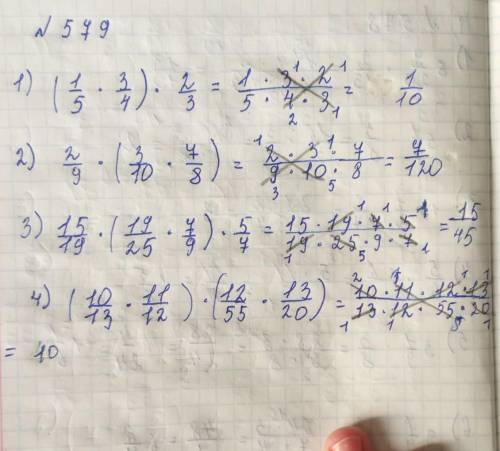 № 579
1) (1/5 · 3/4) · 2/3 = 1 · 3 · 2 / 5 · 4 · 3 = 1/10
2) 2/9 · (3/10 · 7/8) = 2 · 3 · 7 / 9 · 10 · 8 = 7/120
3) 15/19 · (19/25 · 7/9) · 5/7 = 15 · 19 · 7 · 5 / 19 · 25 · 9 · 7 = 15/45
4) (10/13 · 11/12) · (12/55 · 13/20) = 10 · 11 · 12 · 13 / 13 · 12 · 55 · 20
= 10